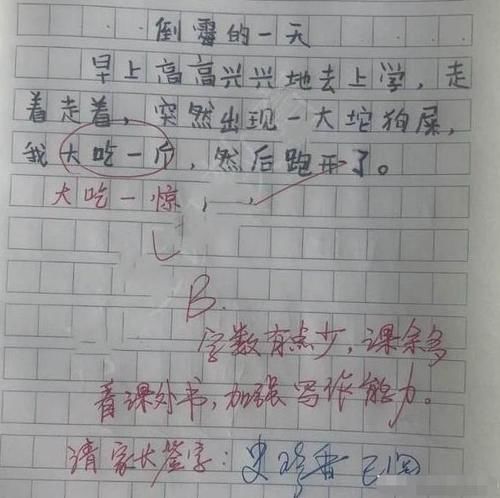 倒霉的一天
早上高高兴兴地去上学，走
着走着，突然出现一大坨狗屎，
我大吃一斤，然后跑开了。
大吃一惊，
B.
字数有点少，课余多
看课外书，加强写作能力。
请家长签字：史珍香 已阅